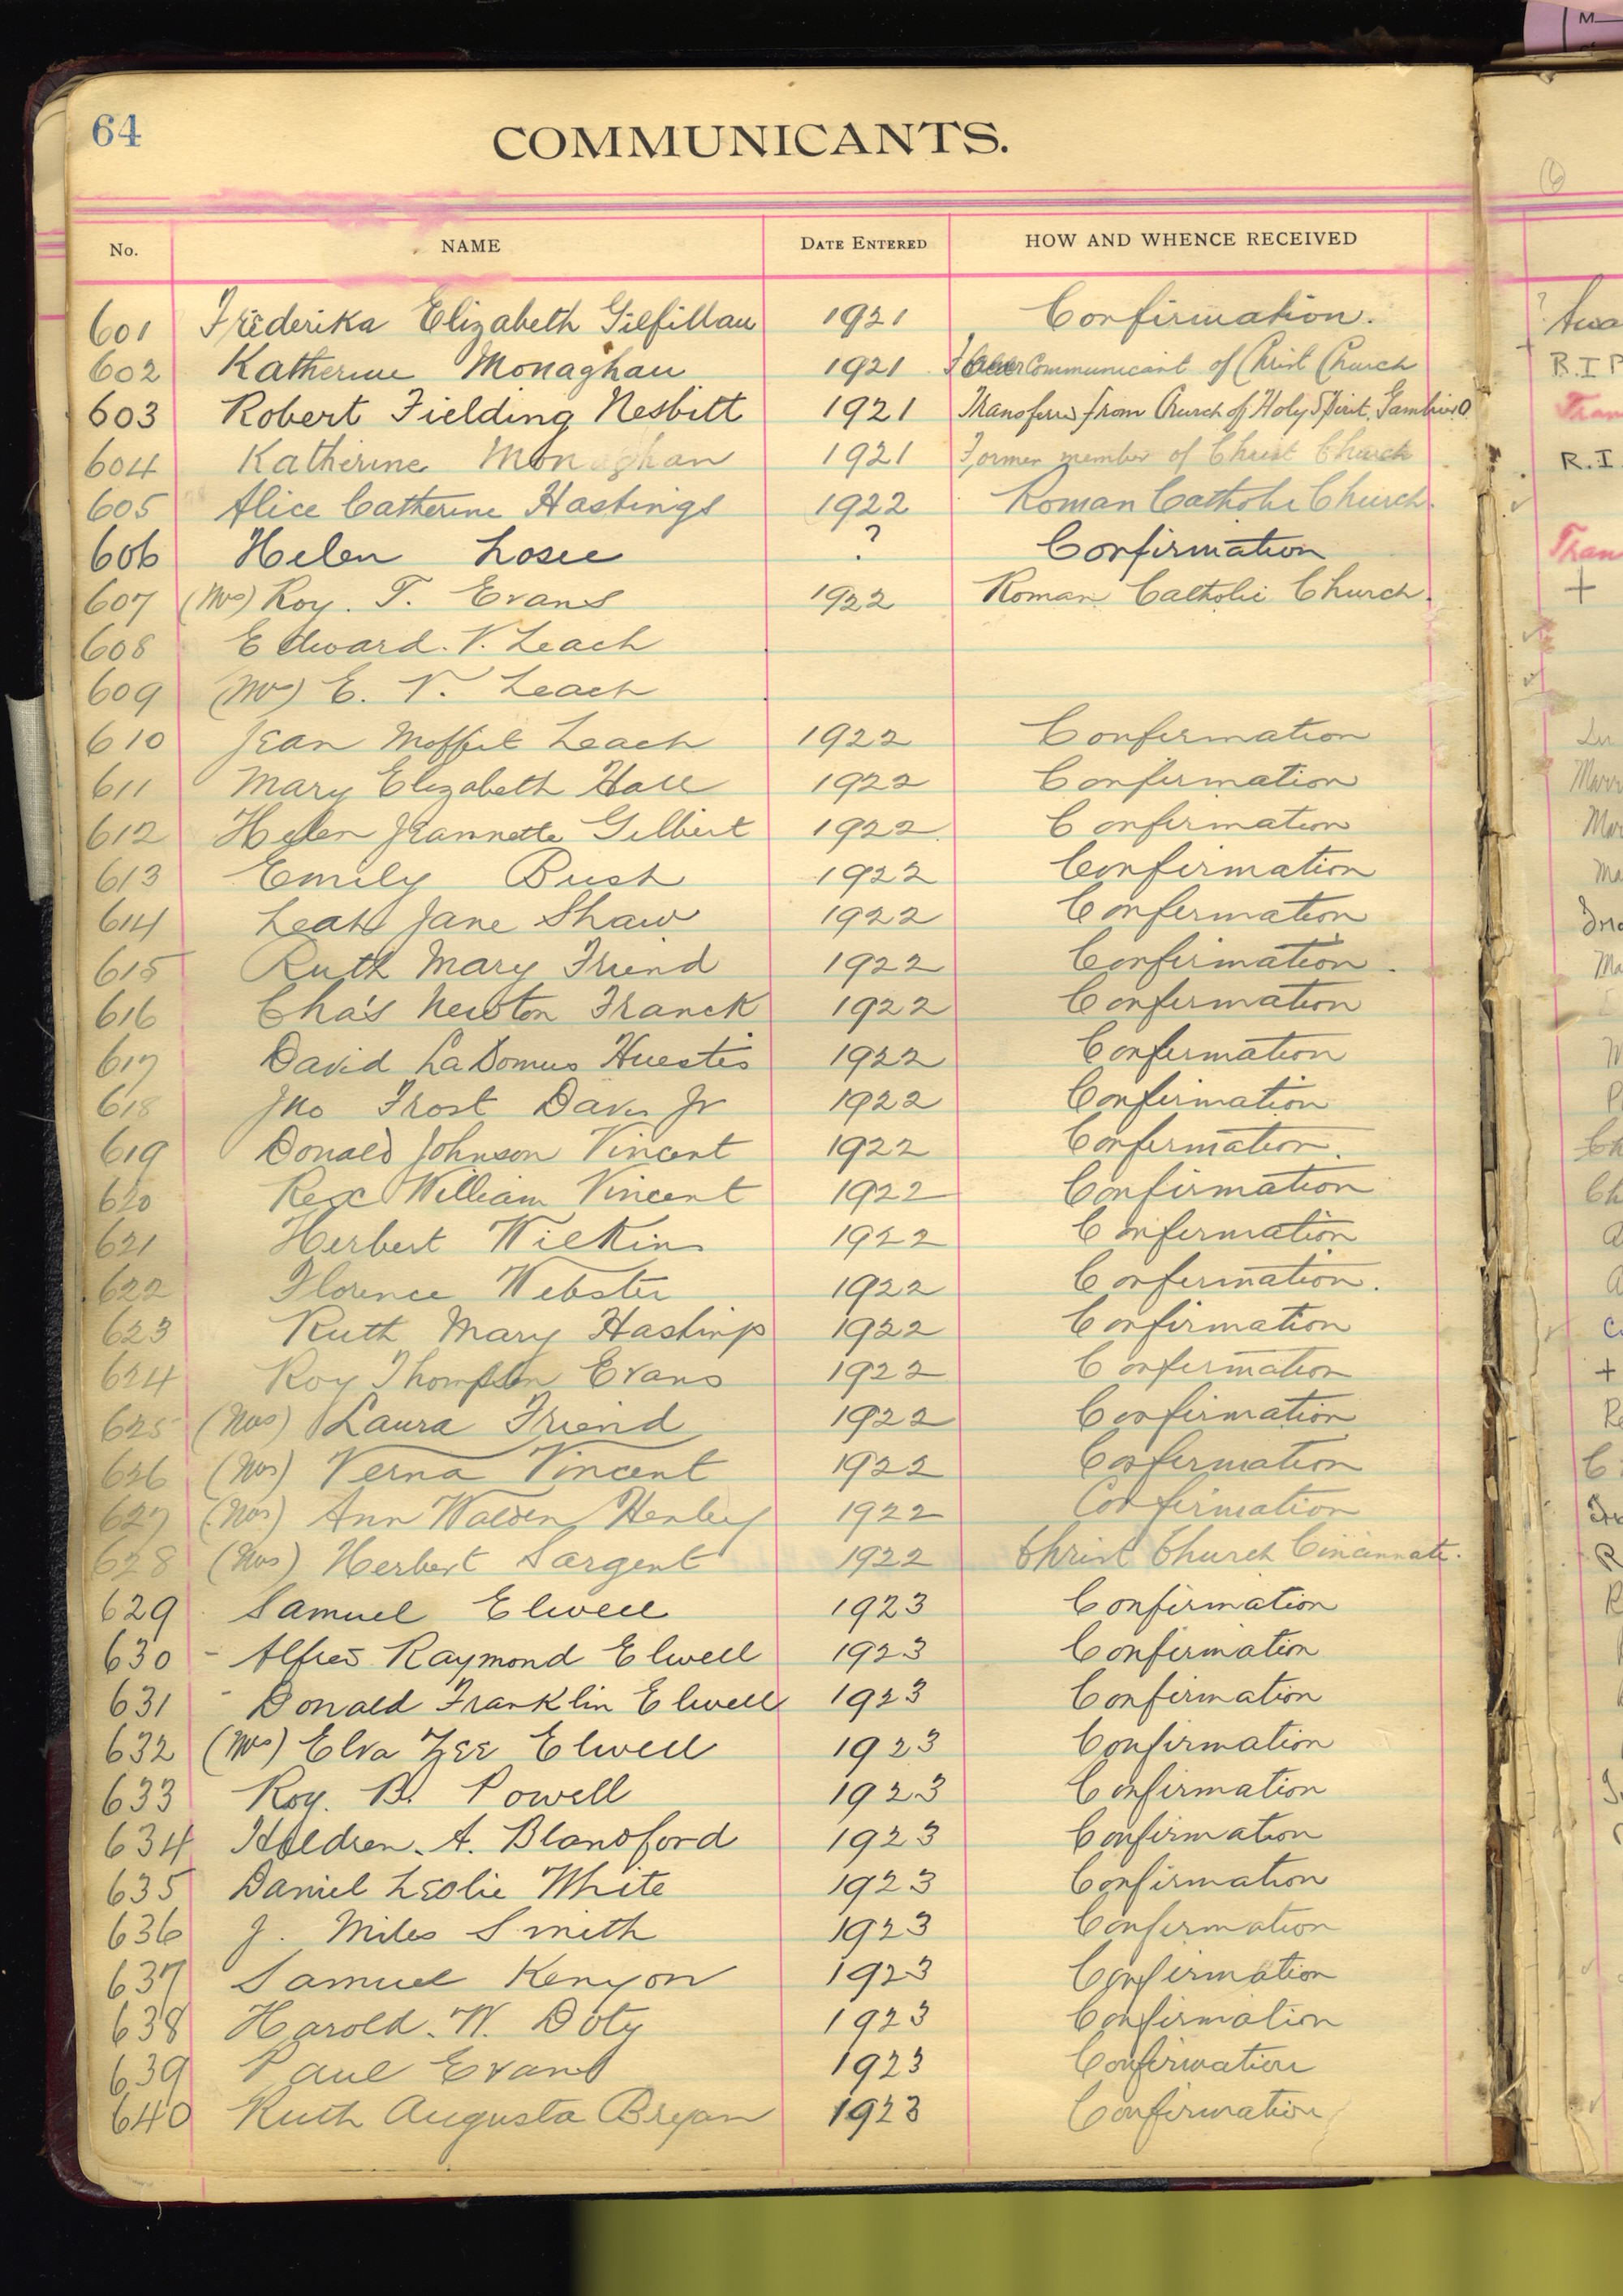 64
COMMUNICANTS.
No. NAME DATE ENTERED HOW AND WHENCE RECEIVED
601 Frederika Elizabeth Gilfillan 1921 Confirmation.
602 Katherine Monaghan 1921 Communicant of Christ Church
603 Robert Fielding Nesbitt 1921 Transferred from Church of Holy Spirit, Gambier O.
604 Katherine Monaghan 1921 Former member of Christ Church
605 Alice Catherine Hastings 1922 Roman Catholic Church.
606 Helen Losee ? Confirmation
607 (Mrs) Roy. T. Evans 1922 Roman Catholic Church.
608 Edward. V. Leach
609 (Mrs) E. V. Leach
610 Jean Moffit Leach 1922 Confirmation
611 Mary Elizabeth Hall 1922 Confirmation
612 Helen Jeannette Gilbert 1922 Confirmation
613 Emily Bush 1922 Confirmation
614 Leah Jane Shaw 1922 Confirmation
615 Ruth Mary Friend 1922 Confirmation.
616 Cha's Newton Franck 1922 Confirmation
617 David LaDomus Huestis 1922 Confirmation
618 Jno Frost Davis Jr 1922 Confirmation
619 Donald Johnson Vincent 1922 Confirmation.
620 Rex William Vincent 1922 Confirmation
621 Herbert Wilkins 1922 Confirmation
622 Florence Webster 1922 Confirmation.
623 Ruth Mary Hastings 1922 Confirmation
624 Roy Thompson Evans 1922 Confirmation
625 (Mrs) Laura Friend 1922 Confirmation
626 (Mrs) Verna Vincent 1922 Confirmation
627 (Mrs) Ann Walden Henley 1922 Confirmation
628 (Mrs) Herbert Sargent 1922 Christ Church Cincinnati.
629 Samuel Elwell 1923 Confirmation
630 - Alfred Raymond Elwell 1923 Confirmation
631 - Donald Franklin Elwell 1923 Confirmation
632 (Mrs) Elva Zee Elwell 1923 Confirmation
633 Roy. B. Powell 1923 Confirmation
634 Holdren. A. Blandford 1923 Confirmation
635 Daniel Leslie White 1923 Confirmation
636 J. Miles Smith 1923 Confirmation
637 Samuel Kenyon 1923 Confirmation
638 Harold. W. Doty 1923 Confirmation
639 Paul Evans 1923 Confirmation
640 Ruth Augusta Bryan 1923 Confirmation